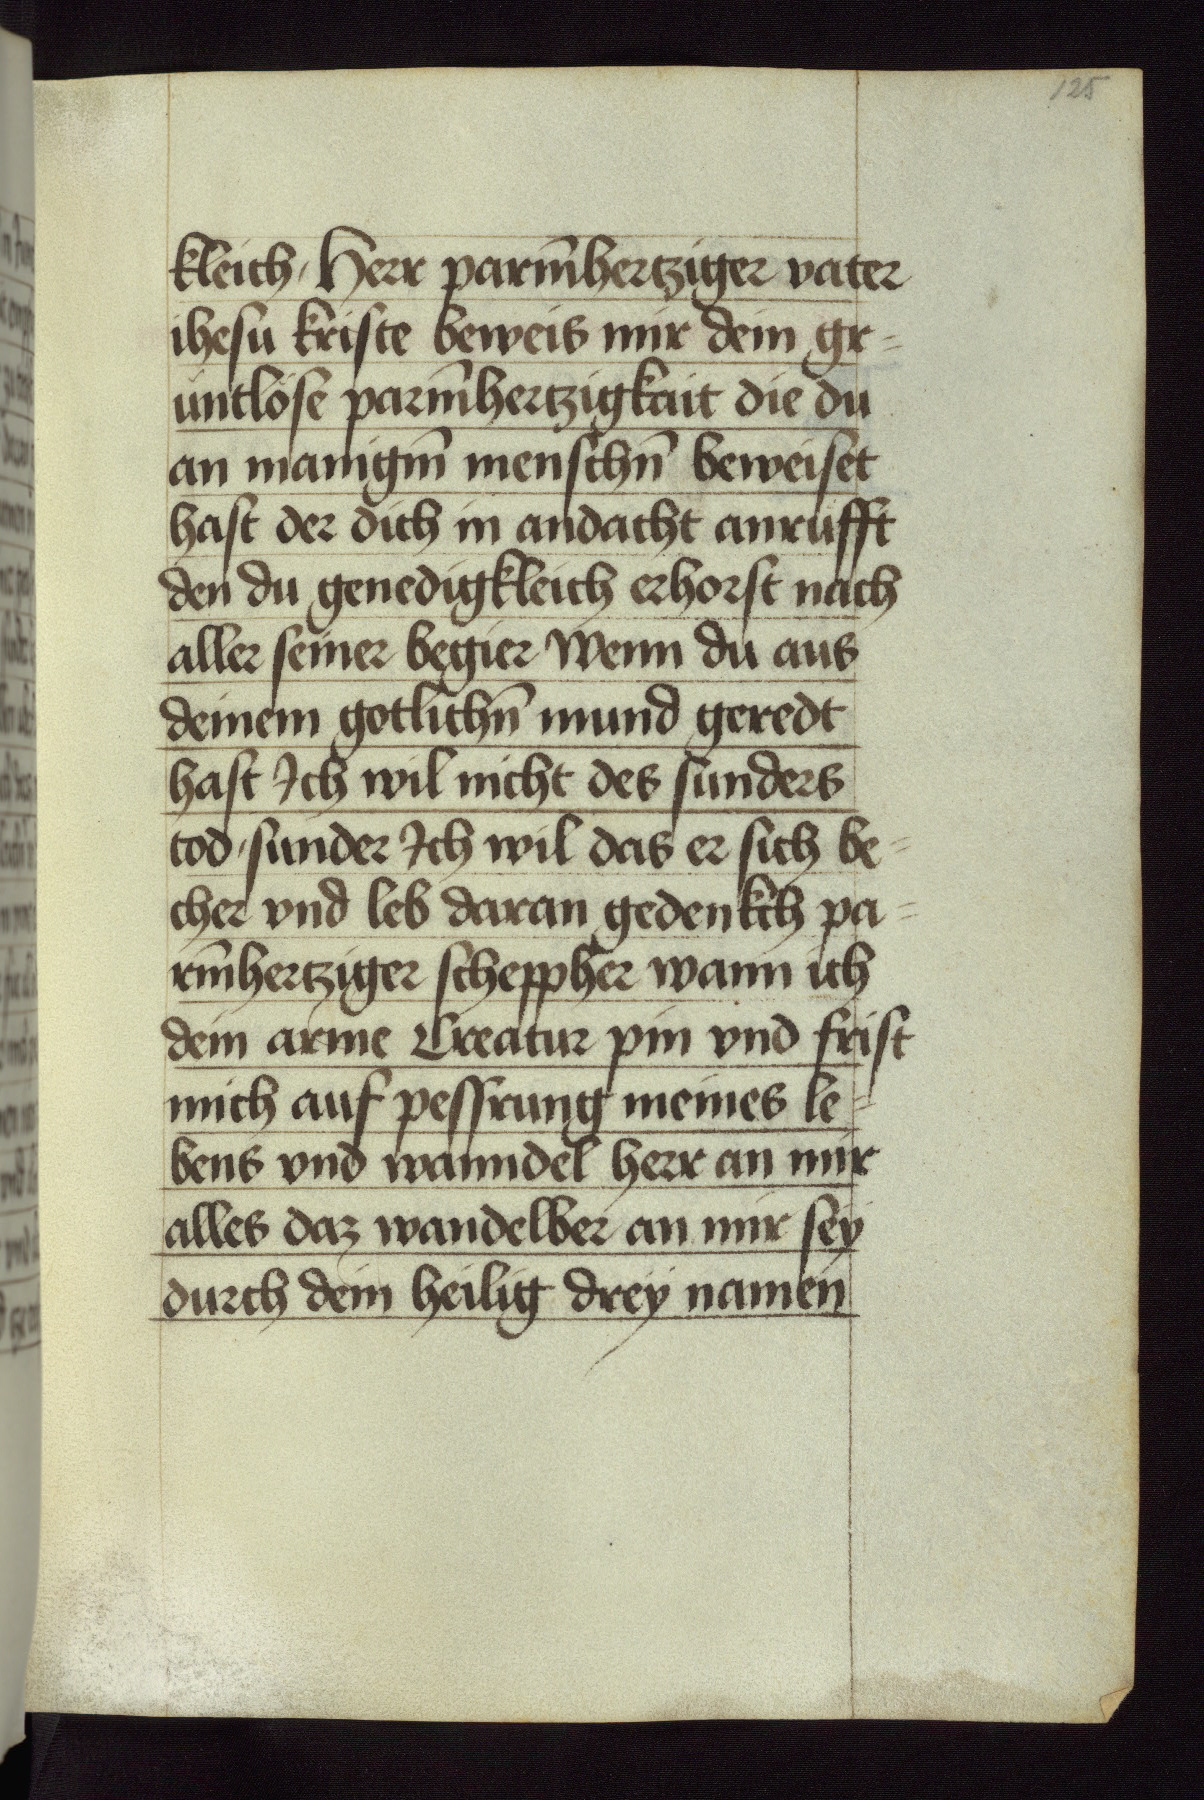 125
kleich · Herr parm̄hertziger vater
ihesu kriste beweis mir dein gr=
untlöse parm̄hertzigkait die du
an manigm̄ menschn̄ beweiset
hast der dich in andacht anrüfft
den du genedigkleich erhorst nach
aller seiner begier Wenn dü aus
deinem gotlichn̄ mund geredt
hast Ich wil nicht des sunders
tod · sunder Ich wil das er sich be=
cher vnd leb daran gedenkch pa=
rm̄hertziger scheppher wann ich
dein arme Creatur pin vnd frist
mich auf pessrung meines le=
bens vnd wanndel herr an mir
alles daz wandelber an mir sey
durch dein heilig drey namen